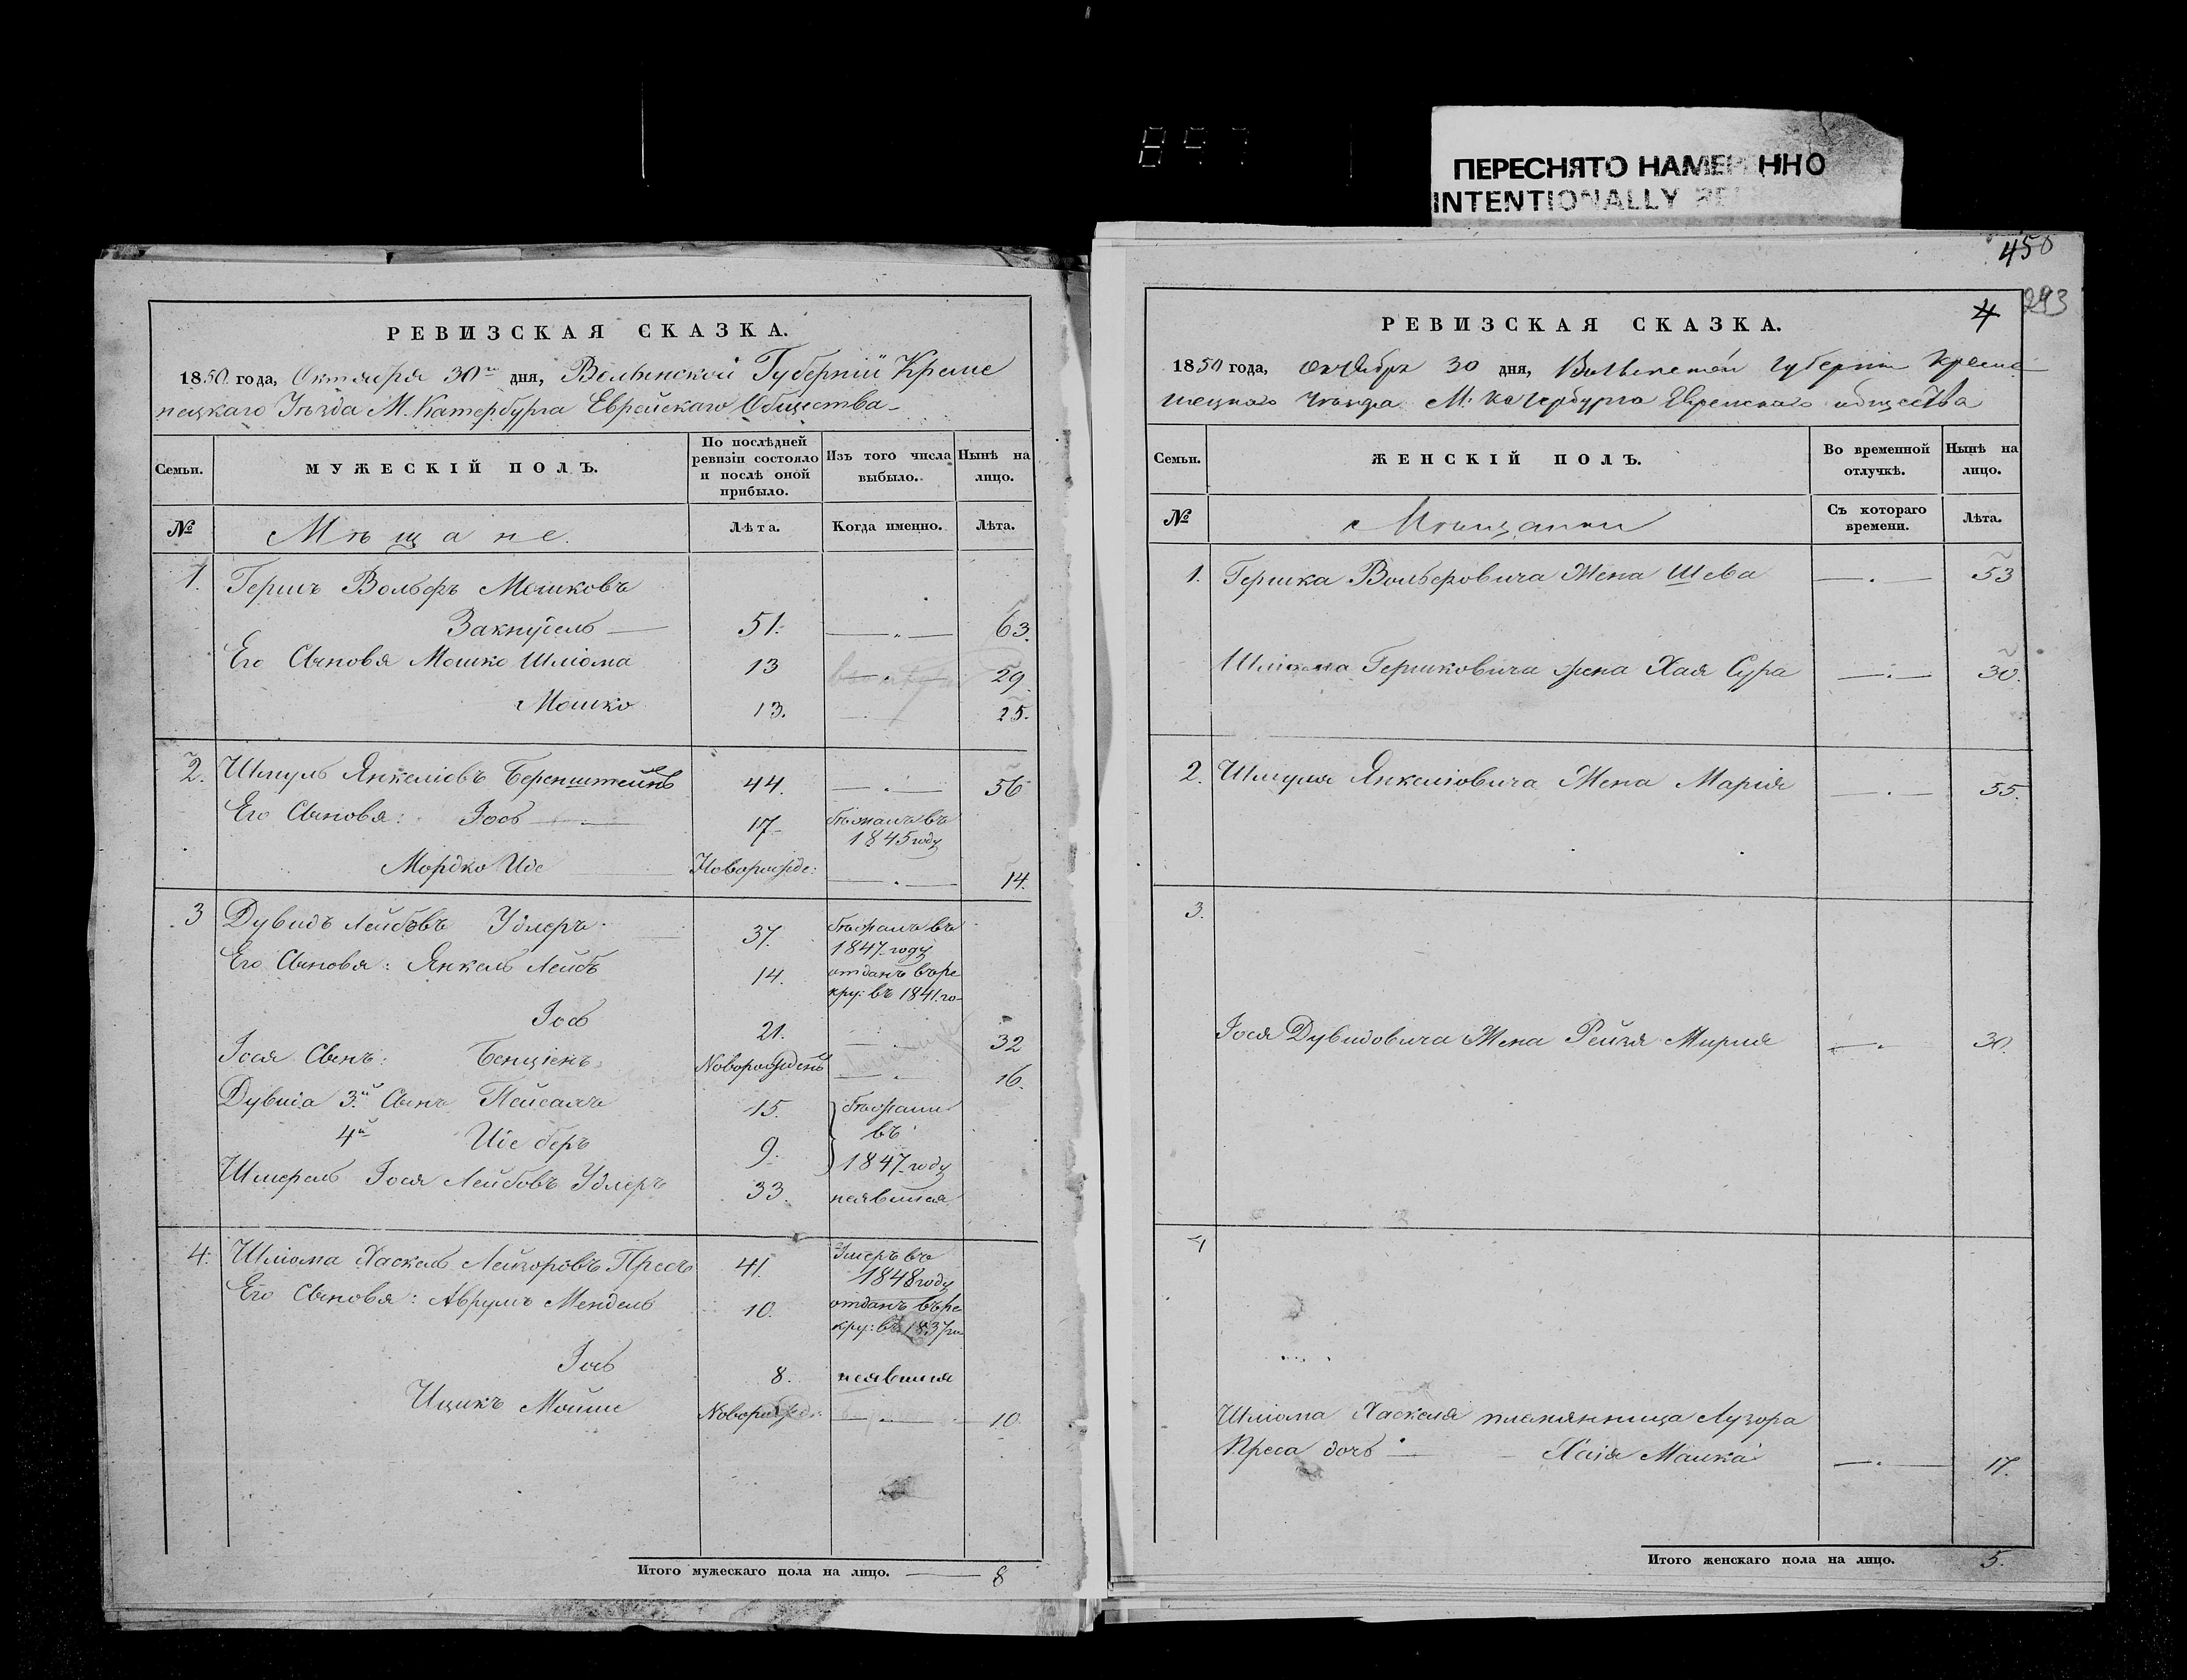 897
ПЕРЕСНЯТО НАМЕРЕННО
INTENTIONALLY
450
293
4
РЕВИЗСКАЯ СКАЗКА.
1850 года, Октября 30го дня, Волынской Губерніи Креме
нецкаго Уѣзда М. Катербурга Еврейскаго Общества
Семьи.
МУЖЕСКІЙ ПОЛЪ.
По послѣдней ревизіи состояло и послѣ оной прибыло.
Изъ того числа выбыло.
Нынѣ на лицо.
№
Мѣщане.
Лѣта.
Когда именно.
Лѣта.
1. Гершъ Вольфъ Мошковъ
Закнусель — 51. — 63.
Его Сыновя Мошко Шліома 13 — 29.
Мошко 13. — 25.
2. Шмуль Янкеліовъ Беренштейнъ 44. — 56
Его Сыновя: Іось — 17 бѣжалъ въ
1845 году
Мордко Иде Новорожде: — 14.
3 Дувидъ Лейбовъ Удлеръ 37. бѣжалъ въ
1847 году
Его Сыновя: Янкель Лейбъ 14. отданъ въ ре
кру: въ 1841 го
Іось 21. — 32
Іося Сынъ: Бенціонъ Новорожденъ — 16.
Дувида 3й Сынъ Пейсахъ 15. бѣжали
въ
4й Иде беръ 9. 1847 году
Шмерель Іося Лейбовъ Удлеръ 33. неявился
4. Шліома Хаскель Лейзоровъ Пресъ 41. Умеръ въ
1848 году
Его Сыновя: Аврумъ Мендель 10. отданъ въ ре
кру: въ 1837 го
Іось 8. неявился
Ицикъ Мойше Новорожде: — 10.
Итого мужескаго пола на лицо. — 8
РЕВИЗСКАЯ СКАЗКА.
1850 года, Октября 30 дня, Волынской Губерніи Креме
нецкаго Уѣзда М. Катербурга Еврейскаго общества
Семьи.
ЖЕНСКІЙ ПОЛЪ.
Во временной отлучкѣ.
Нынѣ на лицо.
№
Мѣщанки
Съ котораго времени.
Лѣта.
1. Гершка Вольфовича Жена Шева — 53
Шліома Гершковича жена Хая Сура — 30.
2. Шмуля Янкеліовича Жена Марія — 55.
3.
Іося Дувидовича Жена Рейзя Мирия — 30.
4
Шліома Хаскеля племянница Лузора
Преса дочь — Хаія Малка — 17.
Итого женскаго пола на лицо. 5.